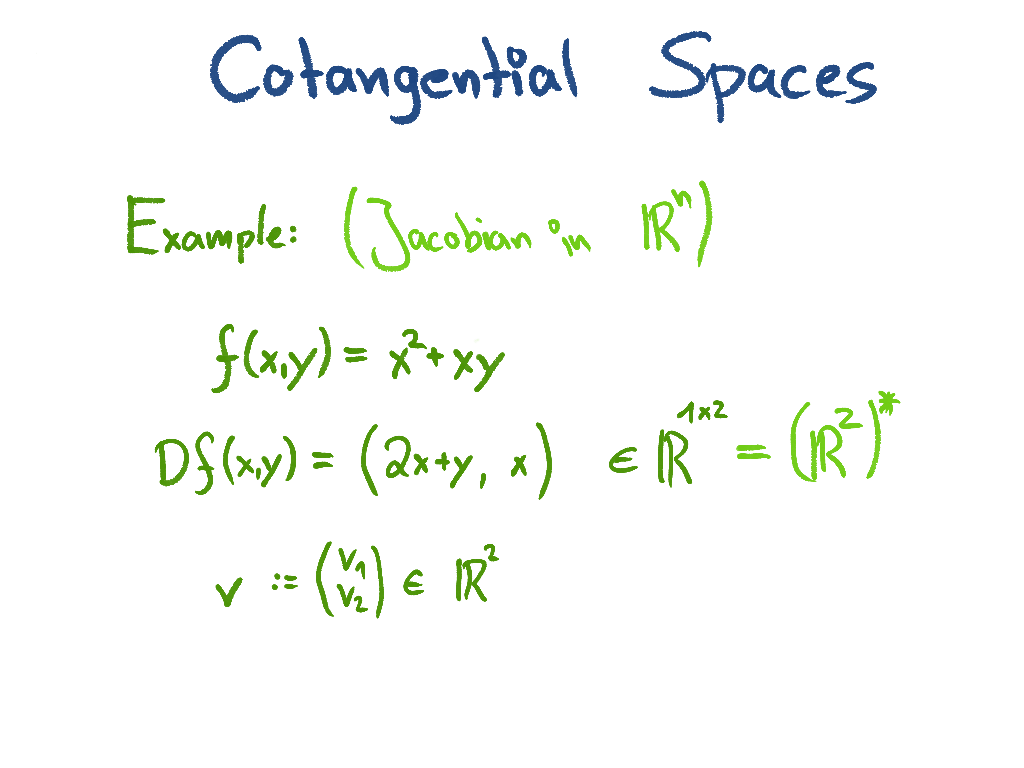 Cotangential Spaces
Example: (Jacobian in ℝⁿ)
f(x,y) = x² + xy
Df(x,y) = (2x+y, x) ∈ ℝ¹ˣ² = (ℝ²)*
v := (v₁ v₂) ∈ ℝ²